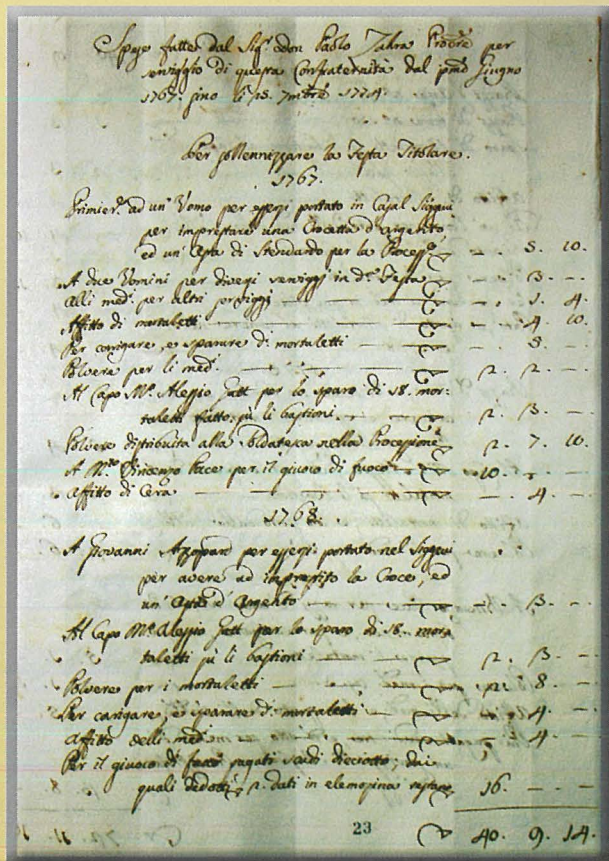 Spese fatte dal Sig.r Don Paolo Zahra Proc.re per
servigio di questa Confraternità dal pmo Giugno
1767. sino li 15. 7mbre 1774.
Per sollennizzare la Festa Titolare.
1767.
Primier.e ad un' Uomo per essersi portato in Casal Siggeui
per imprestare una Crocetta d'argento,
ed un' Asta di Stendardo per la Process.e — — . 5. 10.
A due Uomini per diversi servigj in d.a Festa — . 3. —
Alli med. per altri servigj — — . 1. 4.
Affitto di mortaletti — — . 4. 10.
Per carigare, e sparare d.i mortaletti — — . 8. —
Polvere per li med. — 2. 2. —
Al Capo M.ro Alessio Gatt per lo sparo di 18. mor-
taletti fatto sù li bastioni — 2. 3. —
Polvere distribuita alla Soldatesca nella Processione 2. 7. 10.
A M.ro Vincenzo Pace per il giuoco di fuoco — 10. — —
Affitto di Cera — — . 4. —
1768.
A Giovanni Azzopard per essersi portato nel Siggeui
per avere ad imprestito la Croce, ed
un' Asta d'Argento — — . 3. —
Al Capo M.ro Alessio Gatt per lo sparo di 18. mor-
taletti sù li bastioni — 2. 3. —
Polvere per i mortaletti — 2. 8. —
Per carigare, e sparare d.i mortaletti — — . 4. —
Affitto delli med. — — . 4. —
Per il giuoco di fuoco pagati scudi dieciotto; dai
quali dedotti 2. dati in elemosina restano 16. — —
23
40. 9. 14.